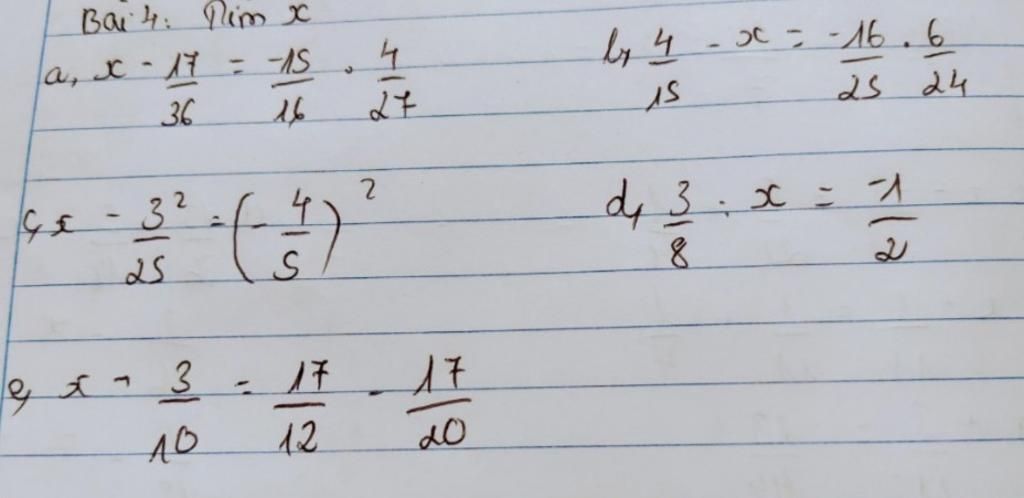 Bài 4: Tìm x
a, x - 17/36 = -15/16 . 4/27   b, 4/15 - x = -16/25 . 6/24
c, x - 3²/25 = (-4/5)²   d, 3/8 : x = -1/2
e, x - 3/10 = 17/12 - 17/20